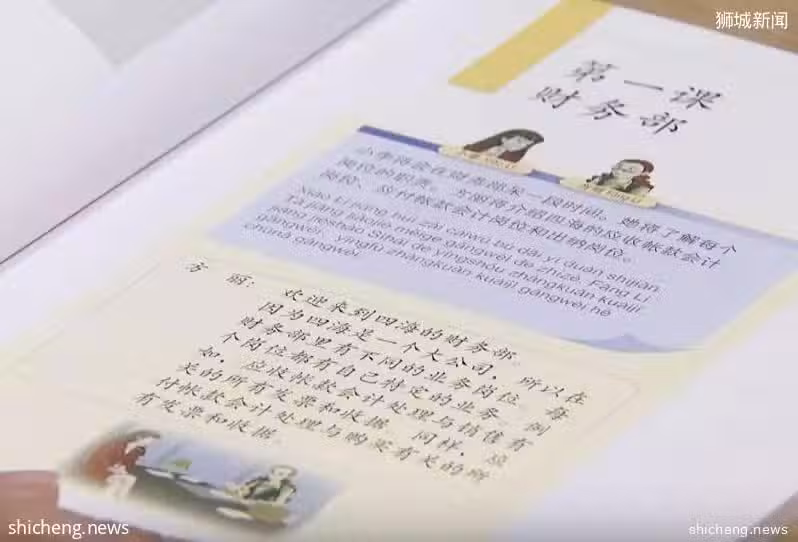 狮城新闻
第一课
财务部
小李将会在财务部呆一段时间。她将了解每个
岗位的职责。方丽将介绍四海的应收帐款会计
岗位、应付帐款会计岗位和出纳岗位。
Xiǎo Lǐ jiāng huì zài cáiwù bù dāi yī duàn shíjiān.
Tā jiāng liǎojiě měige gǎngwèi de zhízé. Fāng Lì
jiāng jièshào Sìhǎi de yīngshōu zhàngkuǎn kuàijì
gǎngwèi, yīngfù zhàngkuǎn kuàijì gǎngwèi hé
chūnà gǎngwèi.
方 丽：欢迎来到四海的财务部。
因为四海是一个大公司，所以在
财务部里有不同的业务岗位。每
个岗位都有自己特定的业务。例
如，应收帐款会计处理与销售有
关的所有发票和收据。同样，应
付帐款会计处理与购买有关的所
有发票和收据。
shicheng.news
shicheng.news